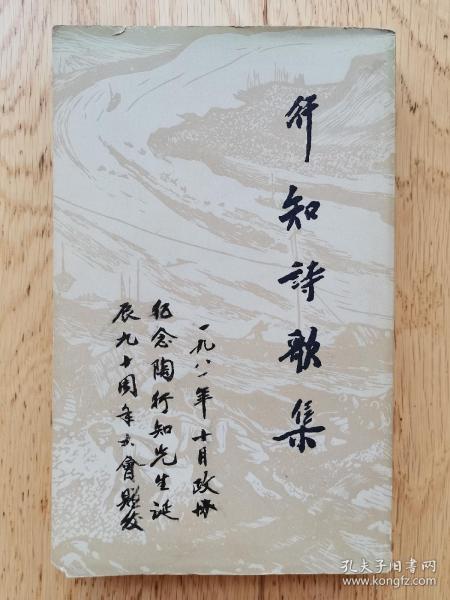 行知詩歌集
一九八一年十月政協
纪念陶行知先生誕
辰九十周年大會贈發
孔夫子旧书网
www.kongfz.com